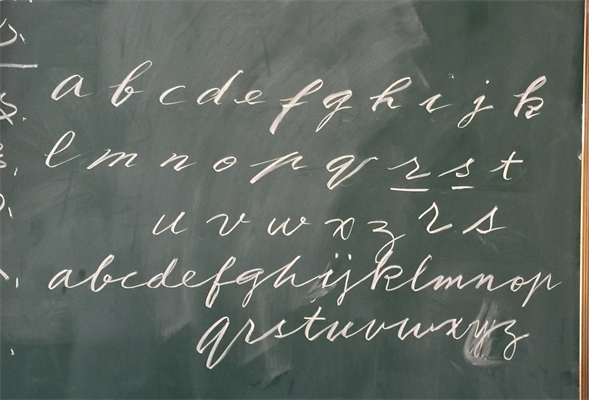 a b c d e f g h i j k
l m n o p q r s t
u v w x z r s
abcdefghijklmnop
qrstuvwxyz